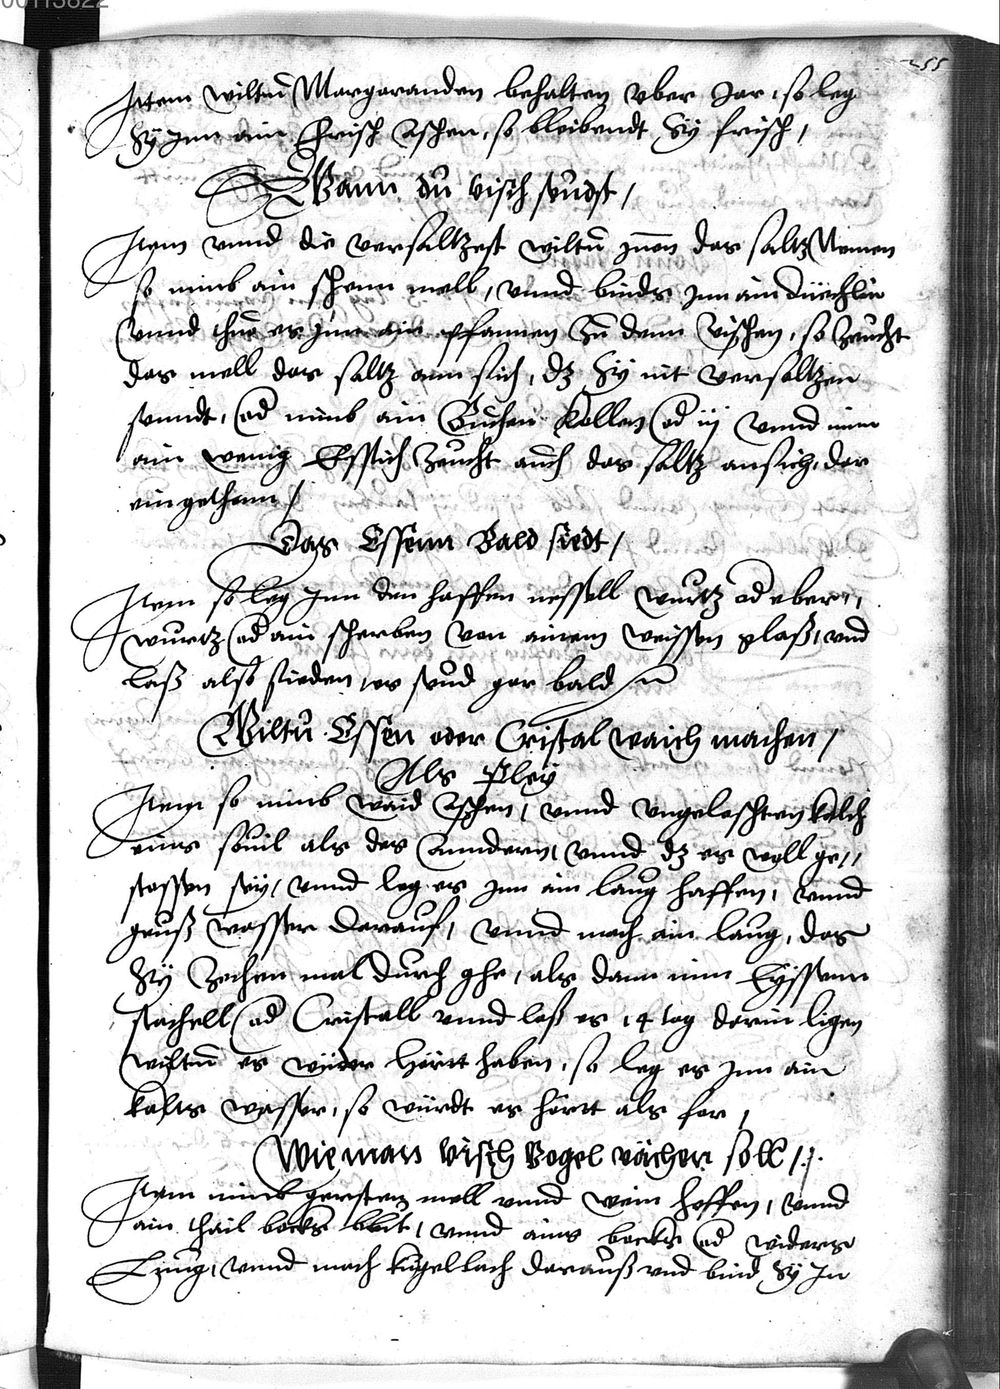 00113822
255
Ittem wiltu Margaranden behalten vber Jar, so leg
Sÿ Inn ain Frisch Aschen, so bleibendt Sÿ frisch /
Wann du visch seudst /
Item vnnd die versaltzest wiltu Inen das saltz Nemen
so nimb ain schenn mell, vnnd binds Inn ain düechlin
vnnd thue es Inn ain pfannen Zu denn vischen, so Zeucht
das mell das saltz ann sich, dz Sÿ nit versaltzen
sunndt, od nimb ain Buchen Kollen od iij vnnd nim
ain wenig Essich Zeucht auch das saltz ansich, dar
ein gethann /
Das Essenn Bald siedt /
Item so leg Inn den haffen nessell wurtz od eber,,
wurtz od ain scherben von ainem weissen glaß, vnd
laß also sieden, es seud gar bald
Wiltu Essen oder Cristal waich machen /
Als Pleÿ
Item so nimb waid Aschen, vnnd vngeleschten kalch
eins souil als des Anndern, vnnd dz es woll ge,,
stossen seÿ, vnnd leg es Inn ain laug haffen, vnnd
geuß wasser darauf, vnnd mach ain laug, das
Sÿ Zechen mal durch ghe, als dann nim Eyssenn
stachell od Cristall vnnd laß es 14 tag darin ligen
wiltu es wider hörtt haben, so leg es Inn ain
kalts wasser, so würdt es hörtt als for,
Wie man visch Vogel vächen soll /.
Item nimb gersten mell vnnd wein heffen, vnnd
ain thail bockhs bluet, vnnd ains bockhs od widers
Lung, vnnd mach kugellach darauß vnd bind Sÿ In